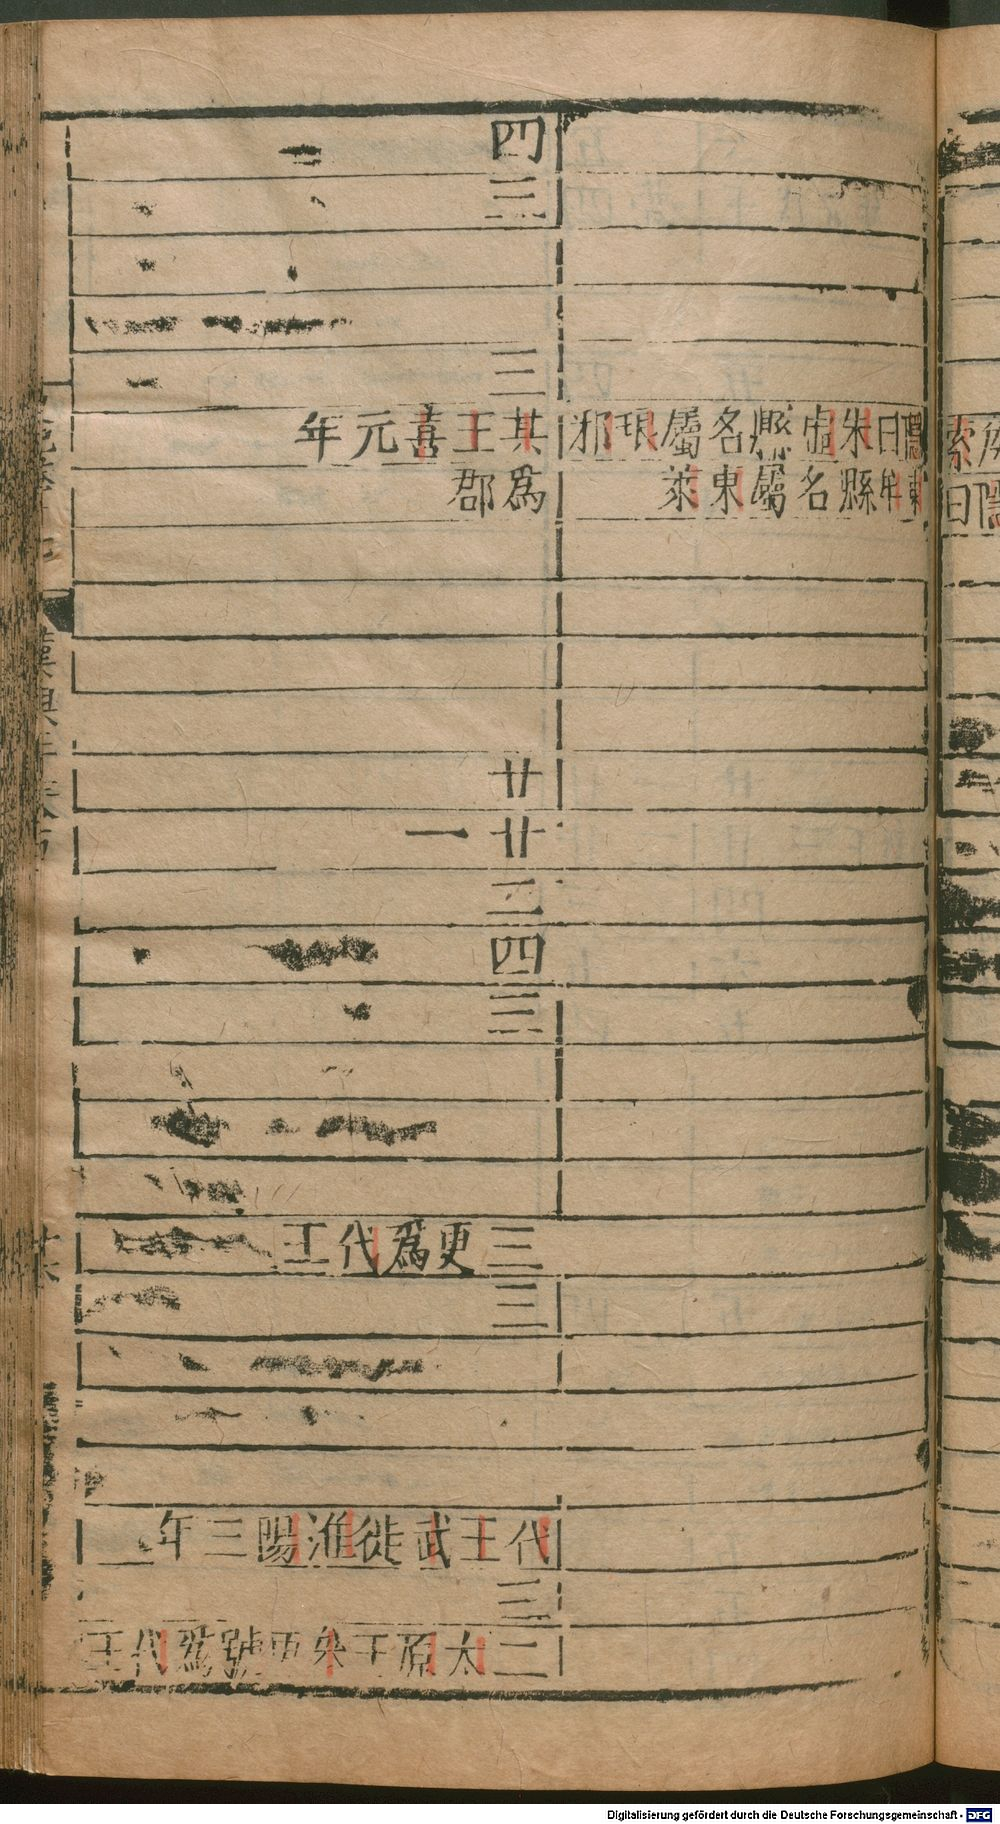 隱曰朱虛縣名屬琅邪
東牟縣名屬東萊
四
三
三
其王喜元年
為郡
廿
廿一
二
四
三
三更爲代王
三
代王武徙淮陽三年
三
二太原王參更號爲代王
Digitalisierung gefördert durch die Deutsche Forschungsgemeinschaft - DFG